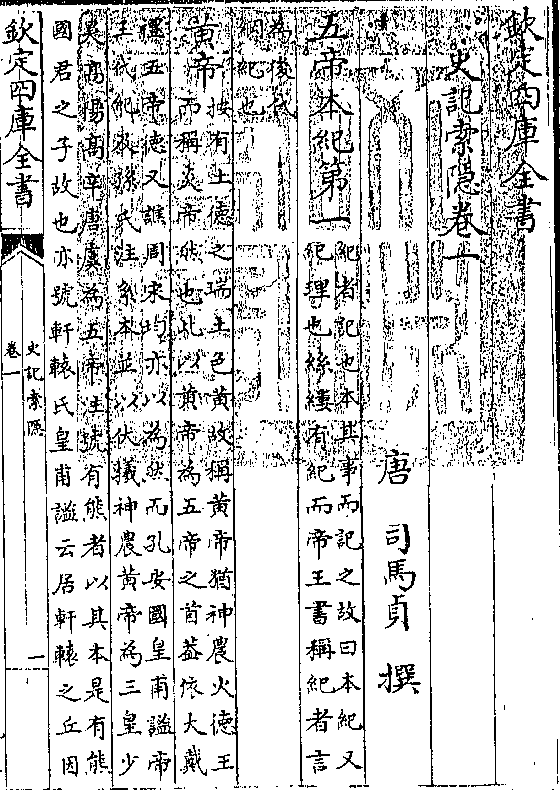 欽定四庫全書
史記索隱卷一
唐司馬貞撰
五帝本紀第一
紀者記也本其事而記之故曰本紀又
紀理也絲縷有紀而帝王書稱紀者言
為後代
綱紀也
黄帝
按有土德之瑞土色黄故稱黄帝猶神農火德王
而稱炎帝然也此以黄帝為五帝之首蓋依大戴
禮五帝德又譙周宋均亦以為然而孔安國皇甫謐帝
王代紀及孫氏注系本並以伏犧神農黄帝為三皇少
昊髙陽髙辛唐虞為五帝注號有熊者以其本是有熊
國君之子故也亦號軒轅氏皇甫謐云居軒轅之丘因
欽定四庫全書
史記索隱
卷一
一